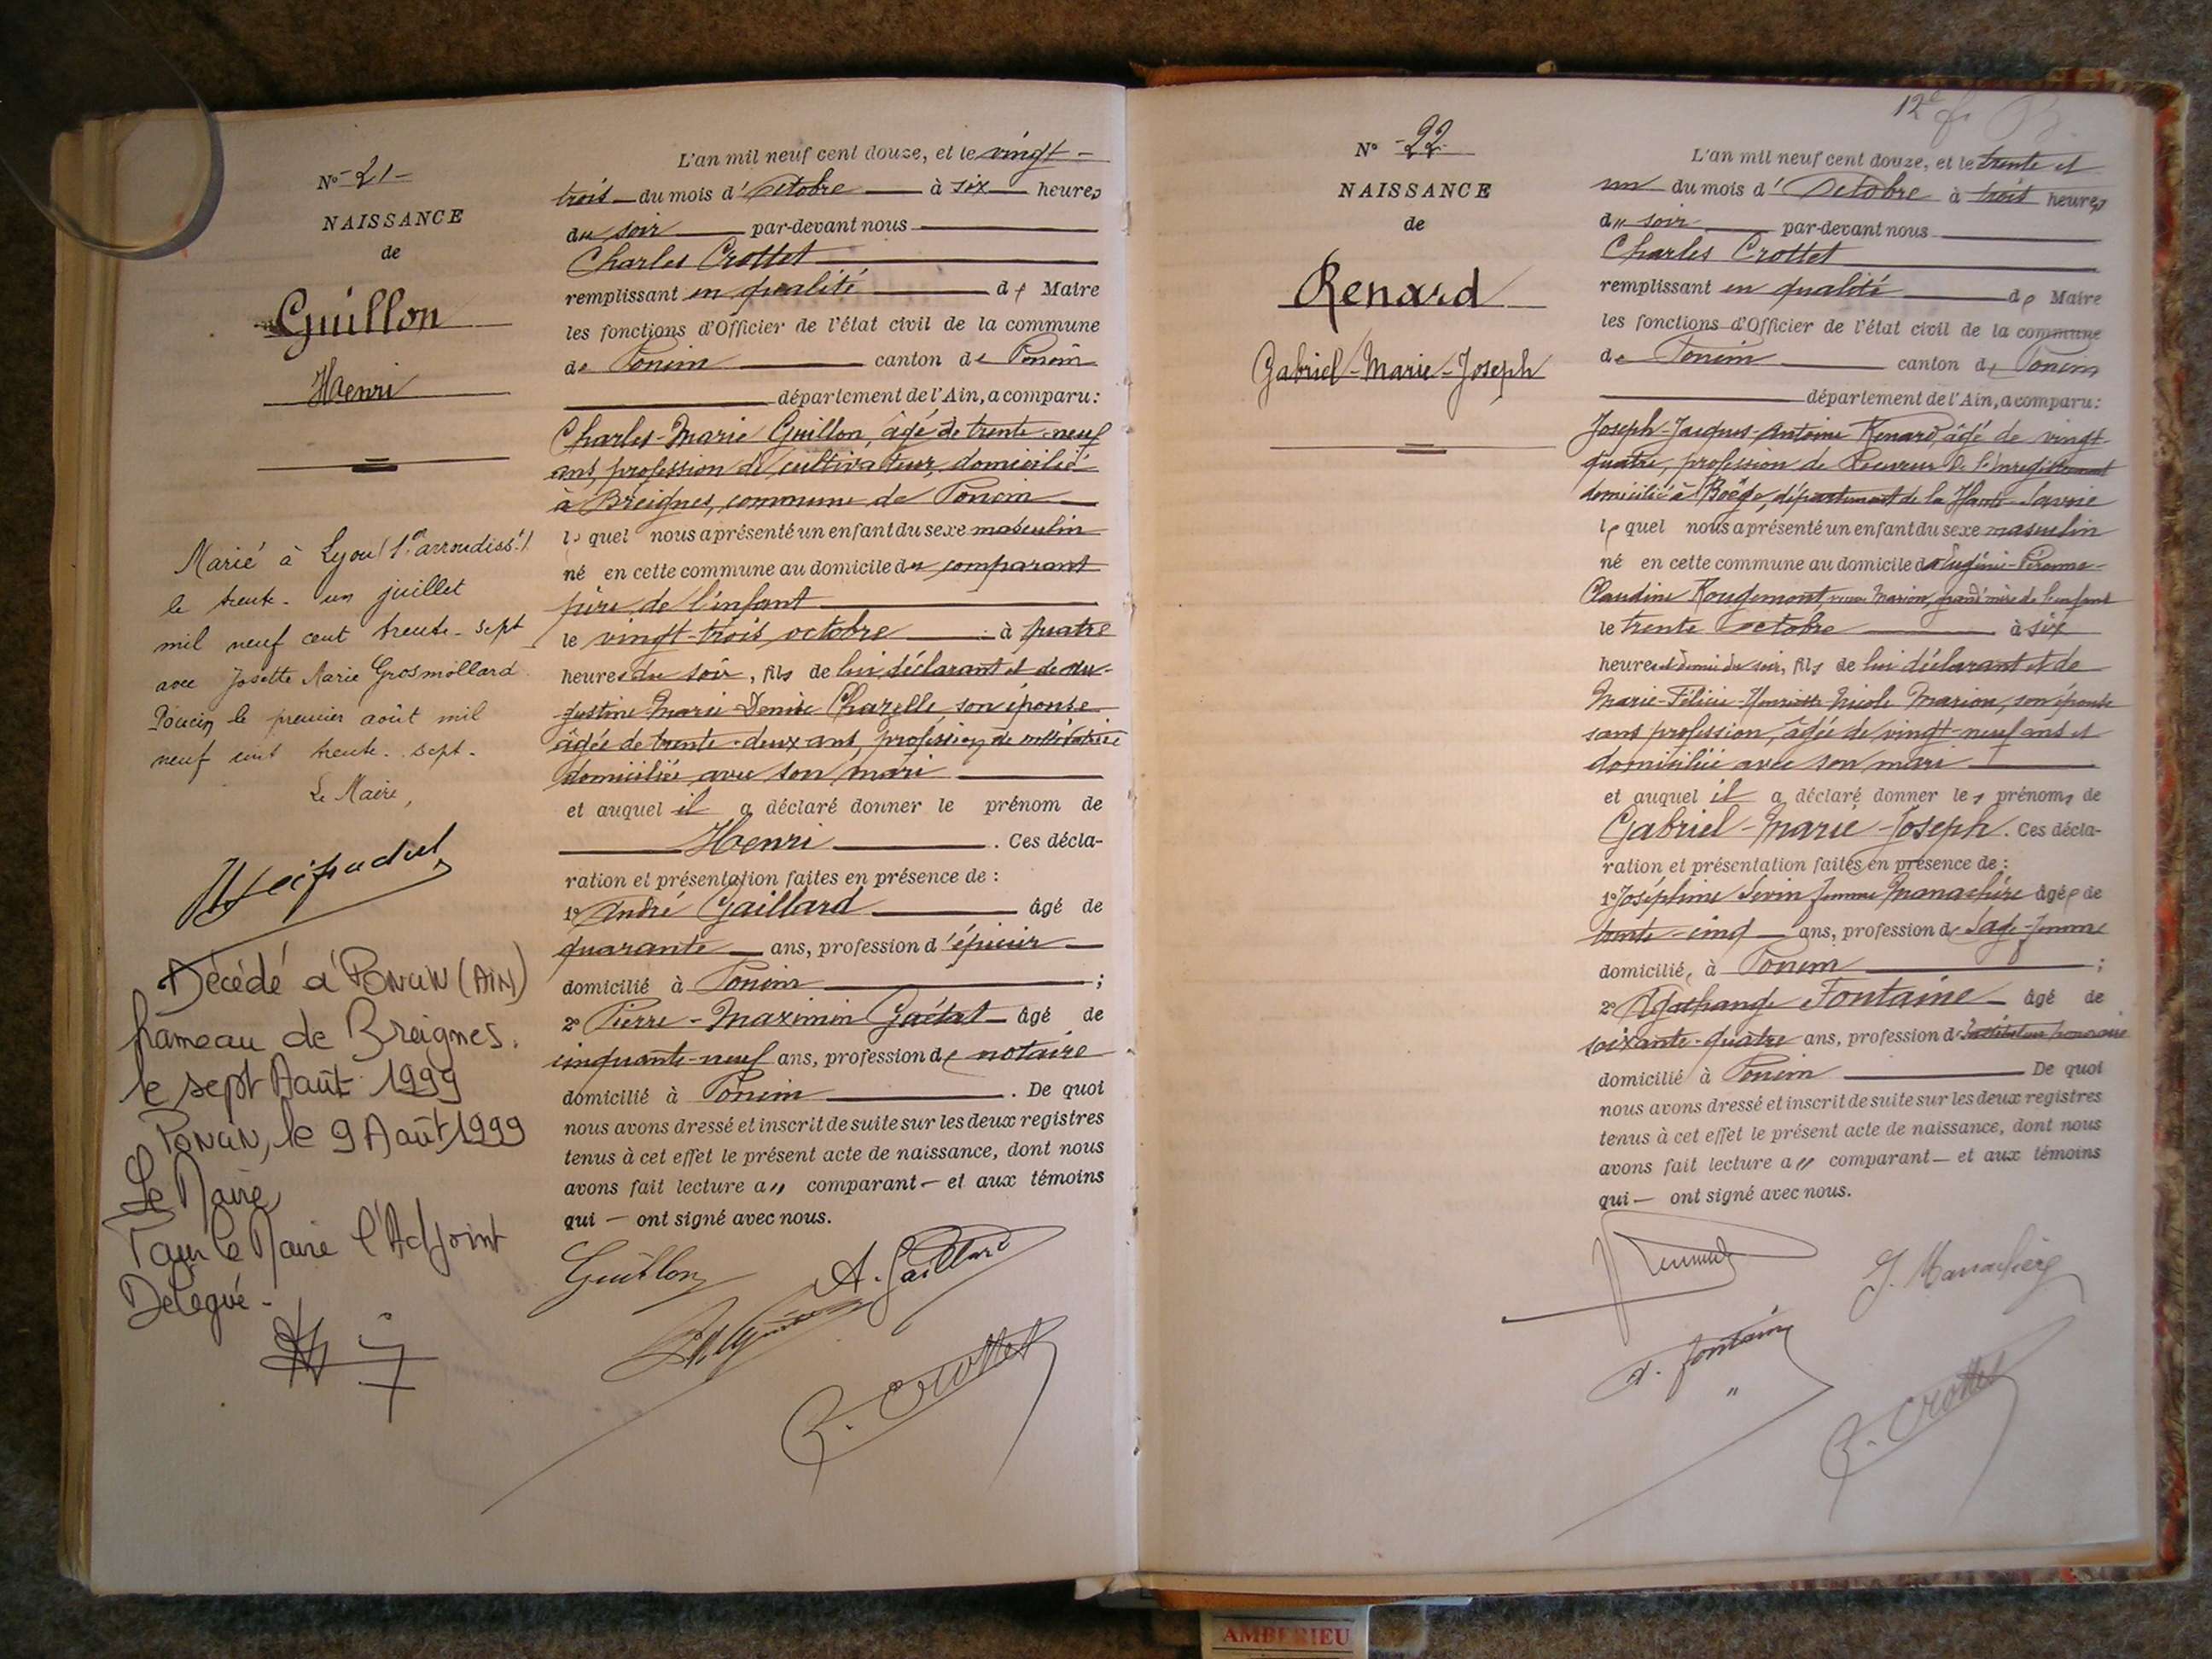 N° 21
NAISSANCE
de
Guillon
Henri
Marié à Lyon (1er arrondisst)
le trente-un juillet
mil neuf cent trente-sept
avec Josette Marie Grosmollard
Poncin le premier août mil
neuf cent trente-sept.
Le Maire,
Décédé à Poncin (Ain)
hameau de Breignes.
le sept Août 1999
Poncin, le 9 Août 1999
Le Maire
Pour le Maire l'Adjoint
Délégué -
L'an mil neuf cent douze, et le vingt-
trois du mois d'octobre à six heures
du soir par-devant nous
Charles Crottet
remplissant en qualité de Maire
les fonctions d'Officier de l'état civil de la commune
de Poncin canton de Poncin
département de l'Ain, a comparu :
Charles-Marie Guillon, âgé de trente-neuf
ans, profession de cultivateur, domicilié
à Breignes, commune de Poncin
lequel nous a présenté un enfant du sexe masculin
né en cette commune au domicile du comparant
père de l'enfant
le vingt-trois octobre à quatre
heures du soir, fils de lui déclarant et de Au-
gustine-Marie-Denise Chazelle, son épouse
âgée de trente-deux ans, profession de cultivatrice
domiciliée avec son mari
et auquel il a déclaré donner le prénom de
Henri. Ces décla-
ration et présentation faites en présence de :
1° André Gaillard âgé de
quarante ans, profession d'épicier
domicilié à Poncin ;
2° Pierre-Maximin âgé de
cinquante-neuf ans, profession de notaire
domicilié à Poncin. De quoi
nous avons dressé et inscrit de suite sur les deux registres
tenus à cet effet le présent acte de naissance, dont nous
avons fait lecture au comparant et aux témoins
qui ont signé avec nous.
Guillon
A. Gaillard
C. Crottet
12e f.
N° 22
NAISSANCE
de
Renard
Gabriel-Marie-Joseph
L'an mil neuf cent douze, et le trente et
un du mois d'Octobre à trois heures
du soir par-devant nous
Charles Crottet
remplissant en qualité de Maire
les fonctions d'Officier de l'état civil de la commune
de Poncin canton de Poncin
département de l'Ain, a comparu :
Joseph-Jacques-Antoine Renard âgé de vingt-
quatre, profession de Receveur de l'enregistrement
domicilié à Boëge, département de la Haute-Savoie
lequel nous a présenté un enfant du sexe masculin
né en cette commune au domicile d'Eugénie-Péronne-
Claudine Rougemont, veuve Marion, grand'mère de l'enfant
le trente octobre à six
heures et demie du soir, fils de lui déclarant et de
Marie-Félicie-Henriette Nicole Marion, son épouse
sans profession, âgée de vingt-neuf ans et
domiciliée avec son mari
et auquel il a déclaré donner les prénoms de
Gabriel-Marie-Joseph. Ces décla-
ration et présentation faites en présence de :
1° Joséphine femme Manachère âgée de
trente-cinq ans, profession de Sage-femme
domiciliée à Poncin ;
2° Fontaine âgé de
soixante-quatre ans, profession d'Instituteur honoraire
domicilié à Poncin De quoi
nous avons dressé et inscrit de suite sur les deux registres
tenus à cet effet le présent acte de naissance, dont nous
avons fait lecture au comparant et aux témoins
qui ont signé avec nous.
J. Manachère
A. Fontaine
C. Crottet
AMBERIEU